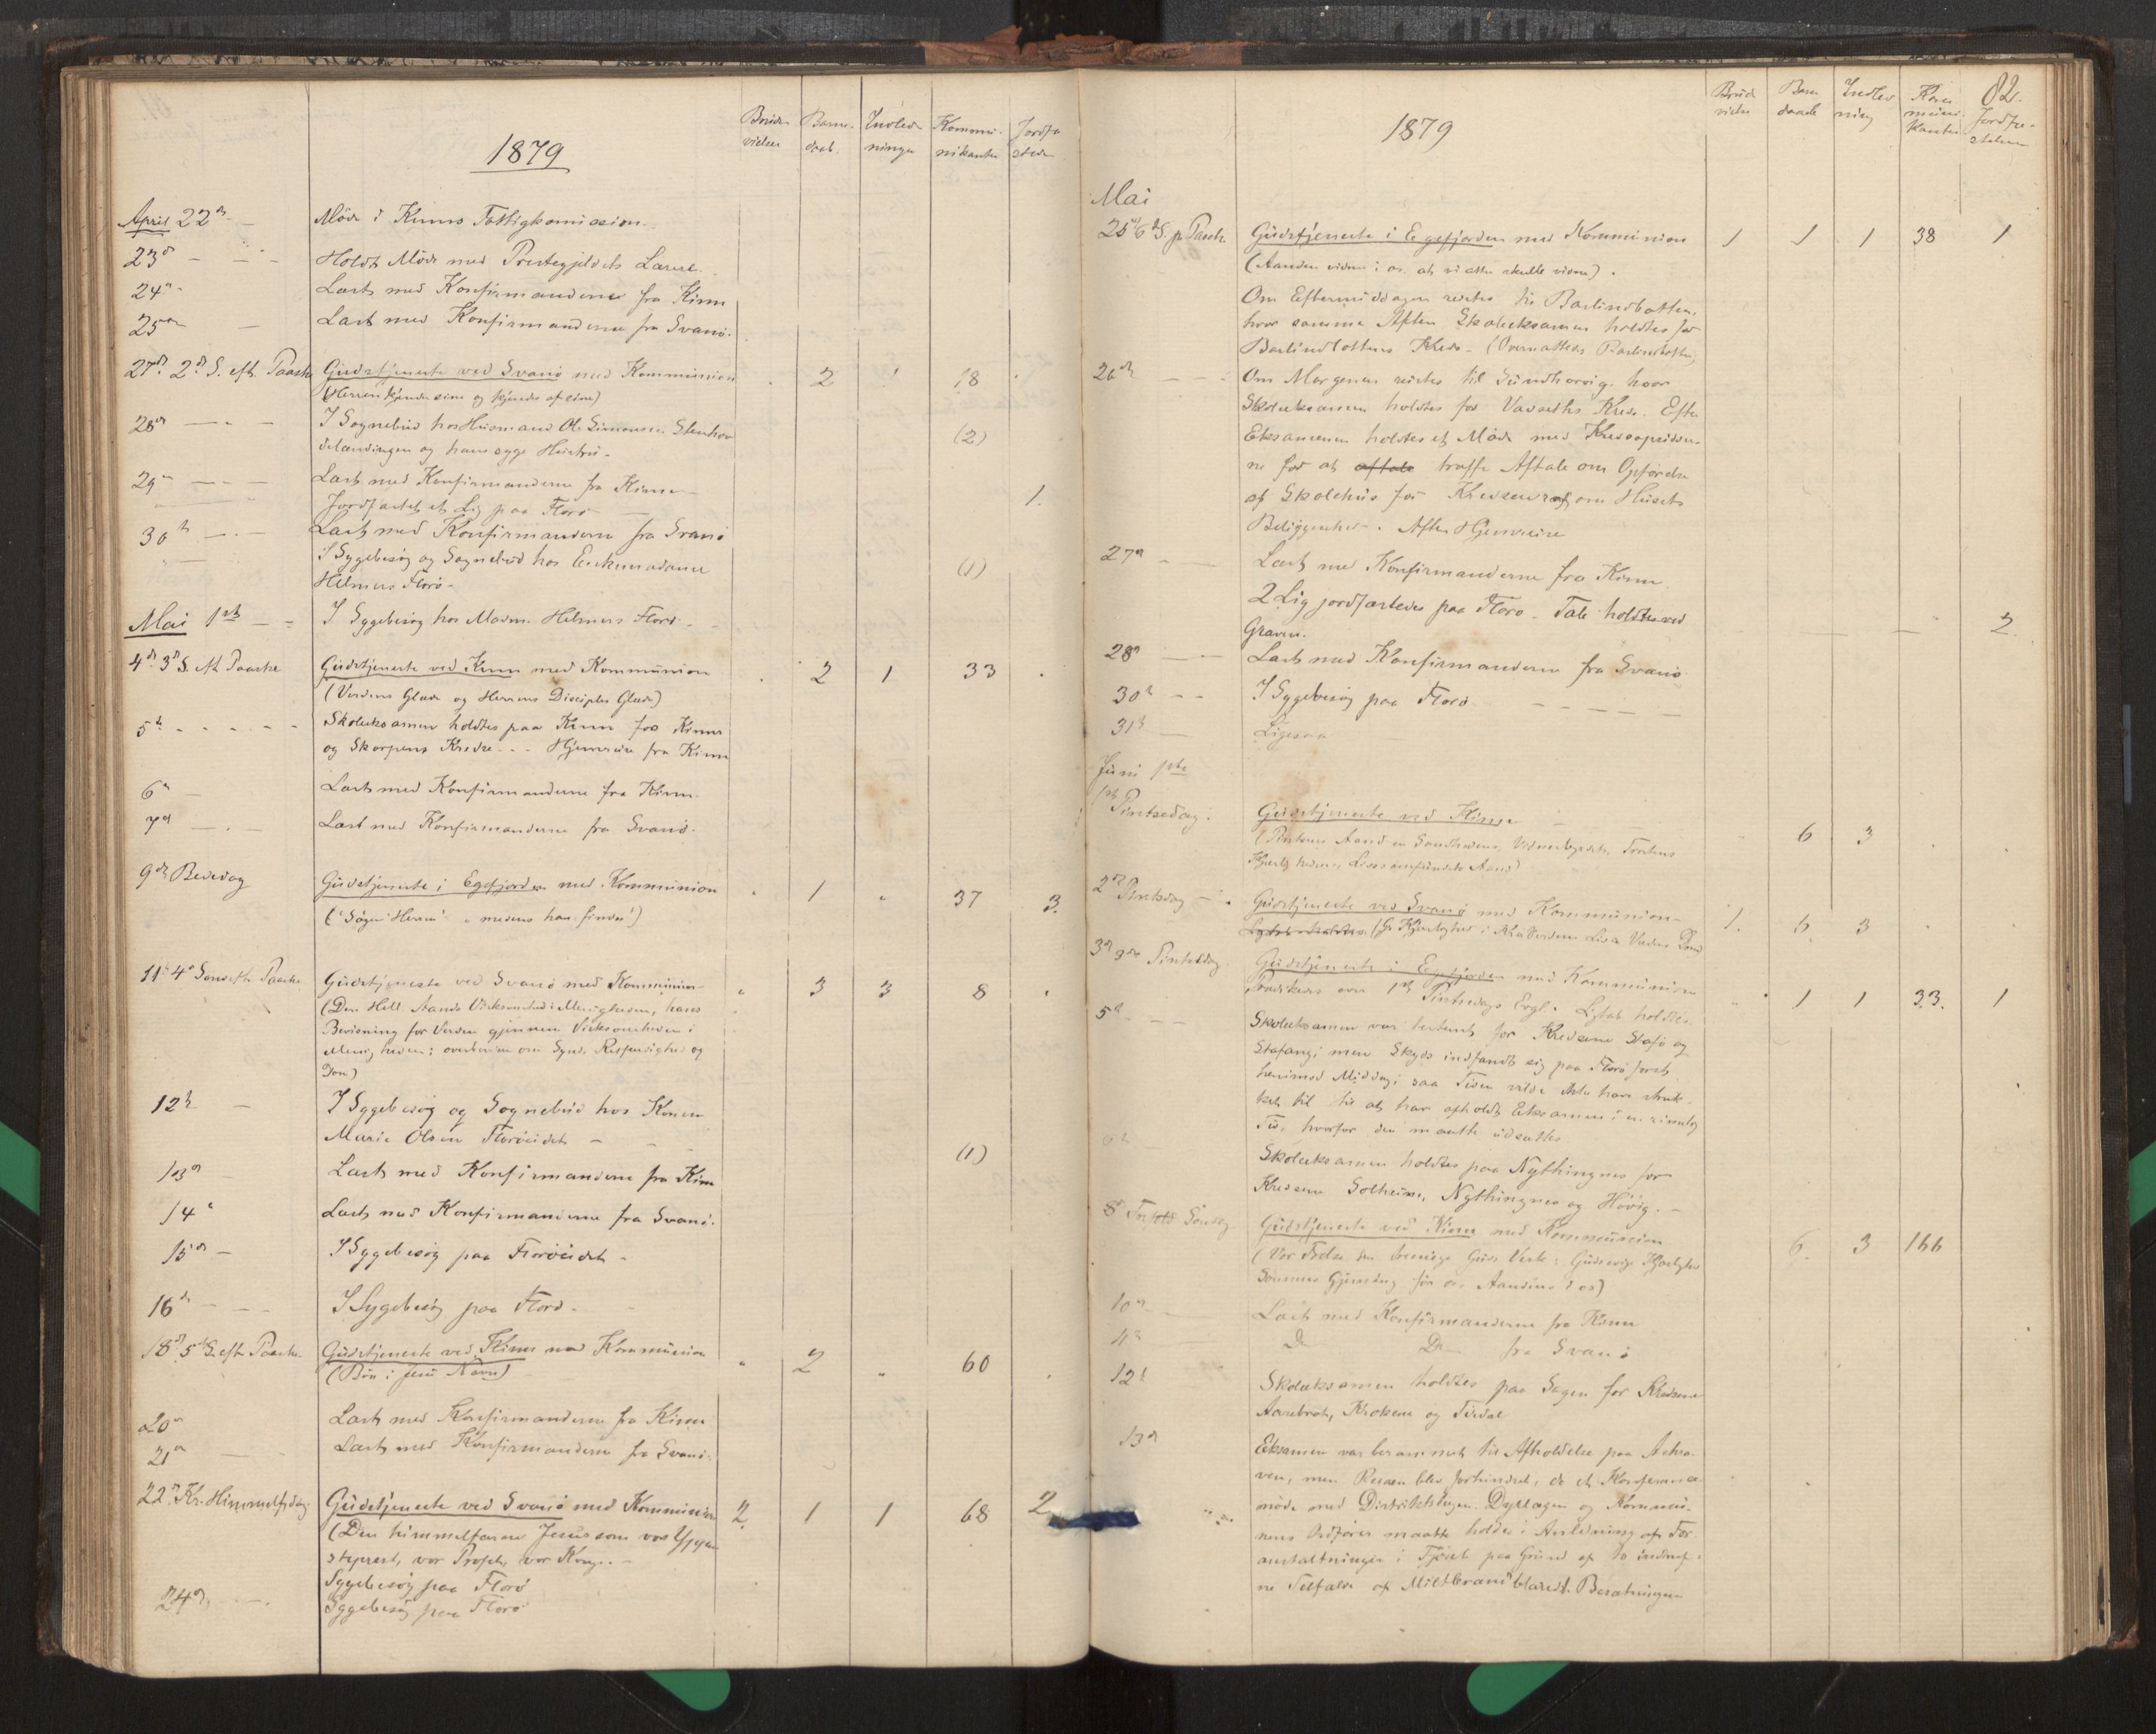 1879
Brude- vielser
Barne- daab.
Indled- ninger
Kommu- nikanter
Jordfæ- stelser
April 22de Møde i Kinns Fattigkomission
23de Holdt Møde med Præstegjeldets Lærere.
24de Læst med Konfirmanderne fra Kinn
25de Læst med Konfirmanderne fra Svanø.
27de 2den S. eft. Paaske Gudstjeneste ved Svanø med Kommunion 2 1 18
(Herren kjender sine og kjendes af sine)
28de I Sognebud hos Husmand Ole Simonsen (2)
og hans syge Hustru -
29de Læst med Konfirmanderne fra Kinn
Jordfæstet et Lig paa Florø 1.
30te Læst med Konfirmanderne fra Svanø
I Sygebesøg og Sognebud hos Enkemadame (1)
Helmers Florø -
Mai 1ste I Sygebesøg hos Madm. Helmers Florø -
4de 3die S. eft. Paaske Gudstjeneste ved Kinn med Kommunion 2 1 33
(Verdens Glæde og Herrens Disciples Glæde)
5te Skoleksamen holdtes paa Kinn for Kinns
og Skorpens Kredse - Hjemreise fra Kinn
6te Læst med Konfirmanderne fra Kinn.
7de Læst med Konfirmanderne fra Svanø.
9de Bededag Gudstjeneste i Egefjorden med Kommunion 1 " 37 3.
("Søger Herren" medens han findes")
11te 4de Søndag eft. Paaske Gudstjeneste ved Svanø med Kommunion 3 3 8
(Den Hell. Aands Virksomhed i Menigheden, hans
Bevisning for Verden gjennem Virksomheden i
Menigheden; overbevise om Synd, Retfærdighed og
Dom)
12te I Sygebesøg og Sognebud hos Konen
Marie Olsen Florøeidet - (1)
13de Læst med Konfirmanderne fra Kinn
14de Læst med Konfirmanderne fra Svanø.
15de I Sygebesøg paa Florøeidet -
16de I Sygebesøg paa Florø -
18de 5te S. eft. Paaske Gudstjeneste ved Kinn med Kommunion " 2 " 60
(Bøn i Jesu Navn)
20de Læst med Konfirmanderne fra Kinn
21de Læst med Konfirmanderne fra Svanø.
22de Kr. Himmelfsdag Gudstjeneste ved Svanø med Kommunion 2. 1 1 68 2
(Den himmelfarne Jesus som vor Ypper-
stepræst, vor Profet, vor Konge. -
Sygebesøg paa Florø
24de Sygebesøg paa Florø
82.
1879
Brude vielser
Barne daab
Indled ning
Kom muni- kanter
Jordfæ- stelser
Mai
25de 6te S. p. Paask. Gudstjeneste i Egefjorden med Kommunion 1 1 1 38 1
(Aanden vidner i os at vi atter skulle vidne).
Om Eftermiddagen reistes til Barlindbotten,
hvor samme Aften Skoleeksamen holdtes for
Barlindbottens Kreds - (Overnattedes Barlindbotten)
26de Om Morgenen reistes til hvor
Skoleeksamen holdtes for Vassets Kreds. Efter
Eksamenen holdtes et Møde med
ne for at aftale træffe Aftale om Opførelse
af Skolehus for Kredsen og om Husets
Beliggenhed -. Aften Hjemreise
27de Læst med Konfirmanderne fra Kinn.
2 Lig jordfæstedes paa Florø - Tale holdtes ved
Graven. 2.
28de Læst med Konfirmanderne fra Svanø
30te I Sygebesøg paa Florø
31te Ligesaa
Juni 1ste
1ste Pintsedag. Gudstjeneste ved Kinn 6 3
Aand er Sandhedens, Trøstens
Aand)
2den Pintsdag Gudstjeneste ved Svanø med Kommunion - 1. 6 3
3die Pintsdag Gudstjeneste i Egefjorden med Kommunion
Prædikedes over 1ste Pintsedags Evgl. Ligtale holdtes 1 1 33. 1
5te Skoleksamen var bestemt for Kredsene Stafø og
Stafang; men Skyds indfandt sig paa Florø først
henimod Middag; saa Tiden vilde ikke have struk-
ket til til at have afholdt Eksamen i en rimelig
Tid, hvorfor den maatte udsættes
6te Skoleeksamen holdtes paa Nyttingnes for
Kredsene Solheim, Nyttingnes og Høvig. -
8de Trefold. Søndag Gudstjeneste ved Kinn med Kommunion 6. 3 166
(Vor Frelse den treenige Guds Værk: Guds evige Kjærlighed
Sønnens Gjerning for os, Aandens i os)
10de Læst med Konfirmanderne fra Kinn
Do Do fra Svanø
12te Skoleksamen holdtes paa for Kredsene
Aarebrot, Krokene og
13de Eksamen var berammet til Afholdelse paa
ven, men Reisen blev forhindret, da et Konferance-
møde med Distriktslægen, Dyrlægen og Kommu-
nens Ordfører maatte holdes i Anledning af For-
anstaltninger i paa Grund af de indtruf-
ne Tilfælde af Miltbrand blandt Besætningen